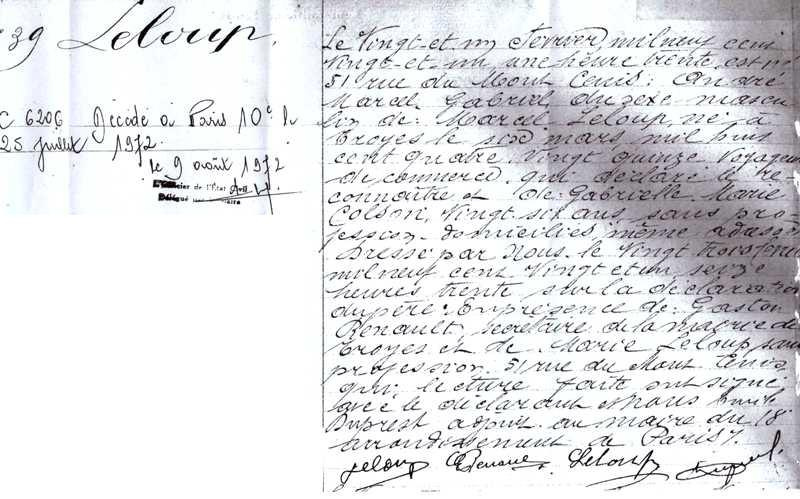 39 Leloup.
C 6206 Décédé à Paris 10e le
25 juillet 1972
le 9 août 1972
L'Officier de l'État Civil
Délégué
Le Vingt et un Février mil neuf cent
Vingt et un une heure trente est né
51 rue du Mont Cenis: André
Marcel Gabriel du sexe mascu
lin de: Marcel Leloup né à
Troyes le six mars mil huit
cent quatre Vingt quinze Voyageur
de commerce qui déclare le re
connaître et de Gabrielle Marie
Colson, Vingt six ans, sans pro-
fession. domiciliés même adresse
Dressé par Nous, le Vingt trois février
mil neuf cent Vingt et un seize
heures trente sur la déclaration
du père: En présence de: Gaston
Renault, secrétaire de la mairie de
Troyes et de Marie Leloup sans
profession. 51 rue du Mont Cenis
qui, lecture faite ont signé
avec le déclarant et Nous
adjoint au maire du 18e
arrondissement de Paris
Leloup Renault Leloup